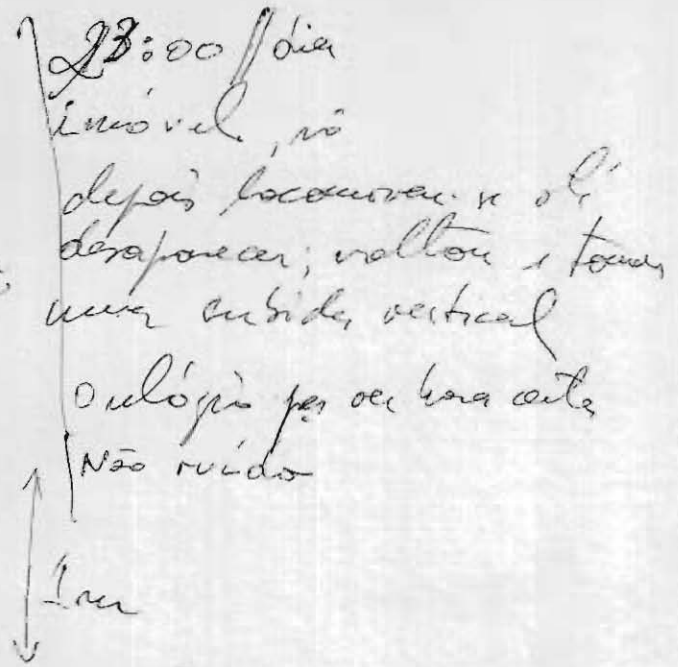 23:00 // dia
imóvel, só
depois locomoveu-se até
desaparecer; voltou e tomou
uma subida vertical
O relógio
hora certa
Não ruído
1 m